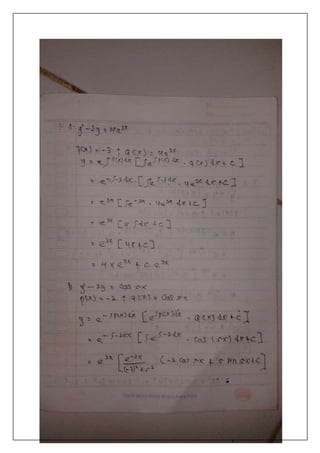 a. y' - 3y = 4e^{3x}
p(x) = -3 ; Q(x) = 4e^{3x}
y = e^{-∫p(x)dx} [∫e^{∫p(x)dx} . Q(x) dx + C]
= e^{-∫-3dx} . [∫e^{∫-3dx} . 4e^{3x} dx + C]
= e^{3x} [∫e^{-3x} . 4e^{3x} dx + C]
= e^{3x} [4∫dx + C]
= e^{3x} [4x + C]
= 4xe^{3x} + Ce^{3x}
b. y' - 2y = Cos 5x
p(x) = -2 ; Q(x) = Cos 5x
y = e^{-∫p(x)dx} [e^{∫p(x)dx} . Q(x) dx + C]
= e^{-∫-2dx} [∫e^{∫-2dx} . Cos (5x) dx + C]
= e^{2x} [e^{-2x}/((-2)² + 5²) (-2 Cos 5x + 5 sin 5x + C]